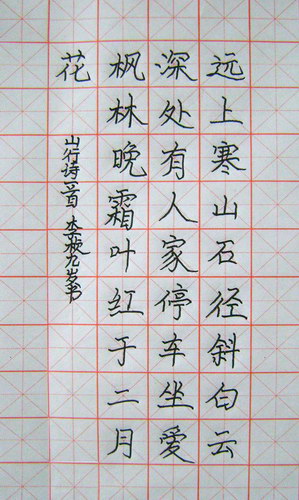 远上寒山石径斜白云
深处有人家停车坐爱
枫林晚霜叶红于二月
花
山行诗一首 李 九岁书